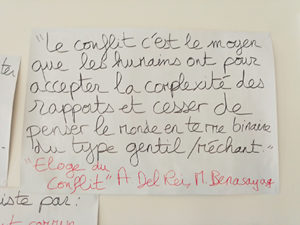 "Le conflit c'est le moyen
que les humains ont pour
accepter la complexité des
rapports et cesser de
penser le monde en terme binaire
du type gentil/méchant"
"Eloge du
Conflit" A Del Rei, M. Benasayag
iste par: